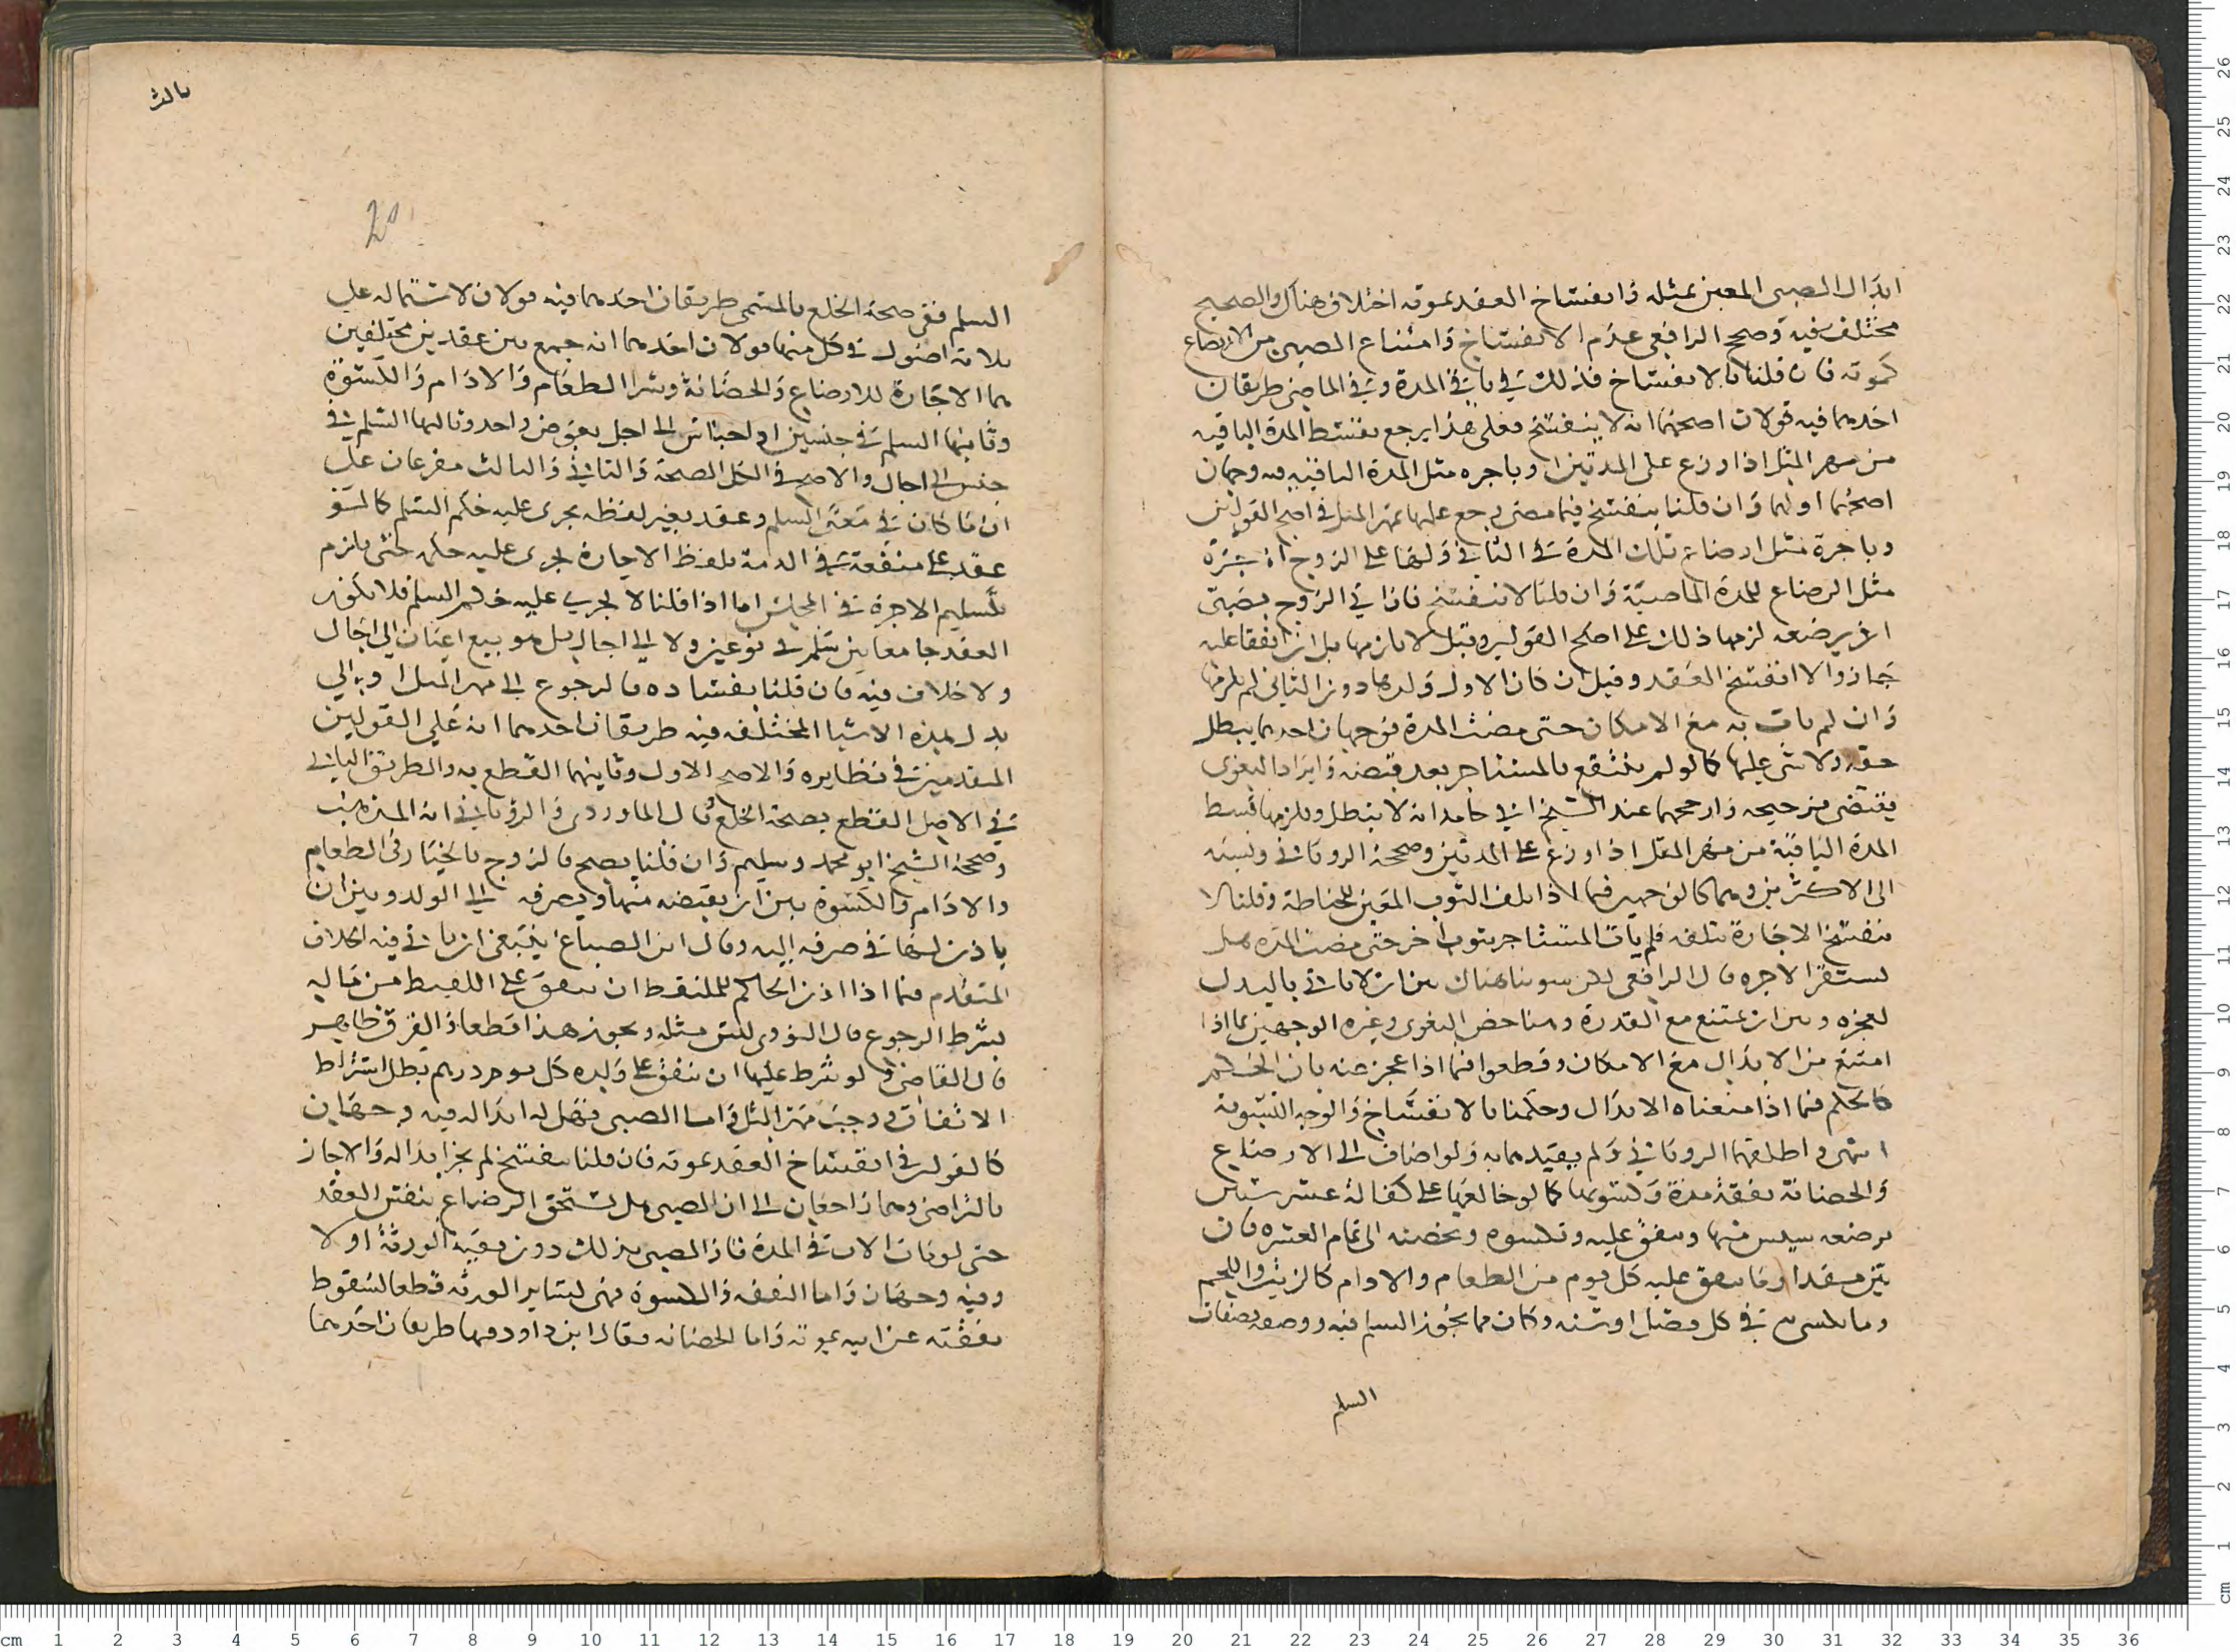 ابدال الصبي المعين بمثله وانفساخ العقد بموته اختلاف هناك والصحيح
مختلف فيه وصحح الرافعي عدم الانفساخ وامتناع الصبي من الارتضاع
كموته فان قلنا بالانفساخ فذلك في باقي المدة وفي الماضي طريقان
احدهما فيه قولان اصحهما انه لا ينفسخ فعلى هذا يرجع بقسط المدة الباقيه
من مهر المثل اذا وزع على المدتين او باجره مثل المدة الباقية فيه وجهان
اصحهما اولهما وان قلنا ينفسخ فيما مضى رجع عليها بمهر المثل في اصح القولين
وباجرة مثل ارضاع تلك المدة في الثاني ولها على الزوج اجرة
مثل الرضاع للمدة الماضية وان قلنا لا ينفسخ فان اتى الزوج بصبي
اخر يرضعه لزمها ذلك على اصح القولين وقيل لا يلزمها بل ان اتفقا عليه
جاز والا انفسخ العقد وقيل ان كان الاول ولدها دون الثاني لم يلزمها
وان لم يات به مع الامكان حتى مضت المدة فوجهان احدهما يبطل
حقه ولا شي عليها كما لو لم ينتفع المستاجر بعد قبضه وايراد البغوي
يقتضي ترجيحه وارجحهما عند الشيخ ابي حامد انه لا يبطل ويلزمها قسط
المدة الباقية من مهر المثل اذا وزع على المدتين وصححه الروياني ونسبه
الى الاكثرين وهما كالوجهين فيما اذا تلف الثوب المعين للخياطة وقلنا لا
تنفسخ الاجارة بتلفه فلم يات المستاجر بثوب اخر حتى مضت المده هل
تستقر الاجره قال الرافعي لكن سوينا هناك بين ان لا ياتي بالبدل
لعجزه وبين ان يمتنع مع القدرة وهنا خص البغوي وغيره الوجهين بما اذا
امتنع من الابدال مع الامكان وقطعوا فيما اذا عجز عنه بان الحكم
كالحكم فيما اذا منعناه الابدال وحكمنا بالانفساخ والوجه التسوية
انتهى واطلقهما الروياني ولم يقيدهما به ولو اضاف الى الارضاع
والحضانة نفقة مدة وكسوتها كما لو خالعها على كفالة عشر سنين
ترضعه سنتين منها وتنفق عليه وتكسوه وتحضنه الى تمام العشره فان
بين مقدار ما ينفق عليه كل يوم من الطعام والادام كالزيت واللحم
وما يكسى به في كل فصل او سنه وكان مما يجوز السلم فيه ووصفه بصفات
السلم
ثالث
20
السلم ففي صحة الخلع بالمسمى طريقان احدهما فيه قولان لاشتماله على
ثلاثة اصول في كل منها قولان احدهما انه جمع بين عقدين مختلفين
هما الاجارة للارضاع والحضانة وشرا الطعام والادام والكسوة
وثانيها السلم في جنسين او اجناس الى اجل بعوض واحد وثالثها السلم في
جنس الى اجال والاصح في الكل الصحة والثاني والثالث مفرعان على
ان ما كان في معنى السلم وعقد بغير لفظه يجري عليه حكم السلم كما لو
عقد على منفعة في الذمة بلفظ الاجارة يجري عليه حكمه حتى يلزم
تسليم الاجرة في المجلس اما اذا قلنا لا يجري عليه حكم السلم فلا يكون
العقد جامعا بين سلم في نوعين ولا الى اجال بل هو بيع اعيان الى اجال
ولا خلاف فيه فان قلنا بفساده فالرجوع الى مهر المثل او الى
بدل هذه الاشيا المختلفه فيه طريقان احدهما انه على القولين
المتقدمين في نظايره والاصح الاول وثانيهما القطع به والطريق الثاني
في الاصل القطع بصحة الخلع قال الماوردي والروياني انه المذهب
وصححه الشيخ ابو محمد وسليم وان قلنا يصح فالزوج بالخيار في الطعام
والادام والكسوة بين ان يقبضه منها ويصرفه الى الولد وبين ان
ياذن لها في صرفه اليه وقال ابن الصباغ ينبغي ان ياتي فيه الخلاف
المتقدم فيما اذا اذن الحاكم للملتقط ان ينفق على اللقيط من ماله
بشرط الرجوع قال النووي ليس مثله ويجوز هذا قطعا والفرق ظاهر
قال القاضي ولو شرط عليها ان تنفق على ولده كل يوم درهم بطل اشتراط
الانفاق ووجب مهر المثل واما الصبي فهل له ابداله فيه وجهان
كالقولين في انفساخ العقد بموته فان قلنا ينفسخ لم يجز ابداله والا جاز
بالتراضي وهما راجعان الى ان الصبي هل يستحق الرضاع بنفس العقد
حتى لو مات الاب في المدة فاز الصبي بذلك دون بقية الورثة او لا
وفيه وجهان واما النفقه والكسوة فهي لساير الورثه قطعا لسقوط
نفقته عن ابيه بموته واما الحضانه فقال ابن داود فيها طريقان احدهما